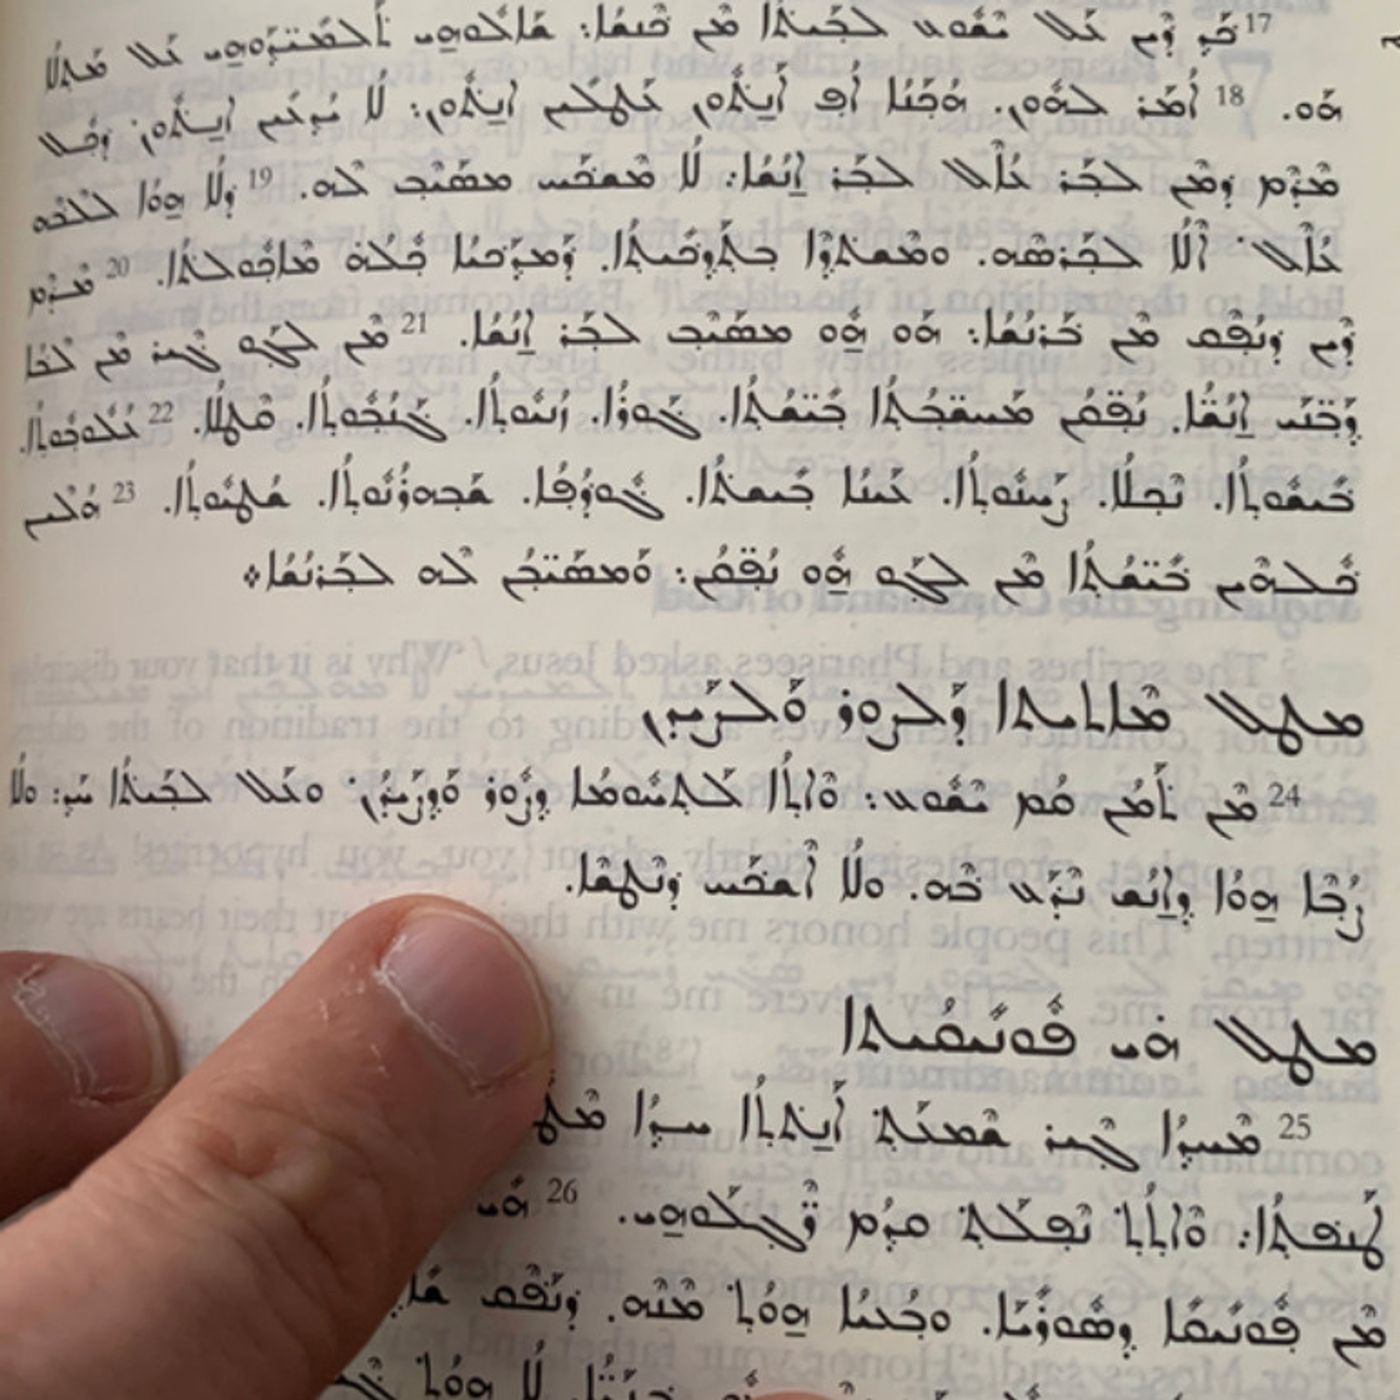 17 ܟܕ ܕܝܢ ܥܠ ܝܫܘܥ ܠܒܝܬܐ ܡܢ ܟܢܫܐ: ܫܐܠܘܗܝ ܬܠܡܝ̈ܕܘܗܝ ܥܠ ܡܬܠܐ
ܗܘ. 18 ܐܡܪ ܠܗܘܢ. ܗܟܢܐ ܐܦ ܐܢܬܘܢ ܥܛܠܝܢ ܐܢܬܘܢ: ܠܐ ܝܕܥܝܢ ܐܢܬܘܢ ܕܟܠ
ܡܕܡ ܕܡܢ ܠܒܪ ܥܐܠ ܠܒܪ ܐܢܫܐ: ܠܐ ܡܫܟܚ ܡܣܝܒ ܠܗ. 19 ܕܠܐ ܗܘܐ ܠܠܒܗ
ܥܐܠ ܐܠܐ ܠܟܪܣܗ. ܘܡܫܬܕܐ ܒܬܕܟܝܬܐ. ܕܡܕܟܝܐ ܟܠܗ ܡܐܟܘܠܬܐ. 20 ܡܕܡ
ܕܝܢ ܕܢܦܩ ܡܢ ܒܪܢܫܐ: ܗܘ ܗܘ ܡܣܝܒ ܠܒܪ ܐܢܫܐ. 21 ܡܢ ܠܓܘ ܓܝܪ ܡܢ ܠܒܐ
ܕܒܢ̈ܝ ܐܢܫܐ. ܢܦ̈ܩܢ ܡܚܫ̈ܒܬܐ ܒܝ̈ܫܬܐ. ܓܘܪܐ. ܙܢܝܘܬܐ. ܓܢܒܘܬܐ. ܩܛܠܐ. 22 ܥܠܘܒܘܬܐ.
ܒܝܫܘܬܐ. ܢܟܠܐ. ܨܚܢܘܬܐ. ܥܝܢܐ ܒܝܫܬܐ. ܓܘܕܦܐ. ܫܒܗܪܢܘܬܐ. ܫܛܝܘܬܐ. 23 ܗܠܝܢ
ܟܠܗܝܢ ܒܝ̈ܫܬܐ ܡܢ ܠܓܘ ܗܘ ܢܦ̈ܩܢ: ܘܡܣܝ̈ܒܢ ܠܗ ܠܒܪܢܫܐ܀
ܡܛܠ ܡܐܬܝܬܐ ܕܠܨܘܪ ܘܠܨܝܕܢ
24 ܡܢ ܬܡܢ ܩܡ ܝܫܘܥ: ܘܐܬܐ ܠܬܚܘܡܐ ܕܨܘܪ ܘܕܨܝܕܢ. ܘܥܠ ܠܒܝܬܐ ܚܕ: ܘܠܐ
ܨܒܐ ܗܘܐ ܕܐܢܫ ܢܕܥ ܒܗ. ܘܠܐ ܐܫܟܚ ܕܢܛܫܐ.
ܡܛܠ ܗܝ ܦܘܢܝܩܝܬܐ
25 ܡܚܕܐ ܓܝܪ ܫܡܥܬ ܐܢܬܬܐ ܚܕܐ
ܛܢܦܬܐ: ܘܐܬܬ ܢܦܠܬ ܩܕܡ ܪ̈ܓܠܘܗܝ. 26 ܗܝ
ܡܢ ܦܘܢܝܩܐ ܕܣܘܪܝܐ. ܘܒܥܝܐ ܗܘܬ ܡܢܗ. ܕܢܦܩ
ܠܐ ܗܘܬ